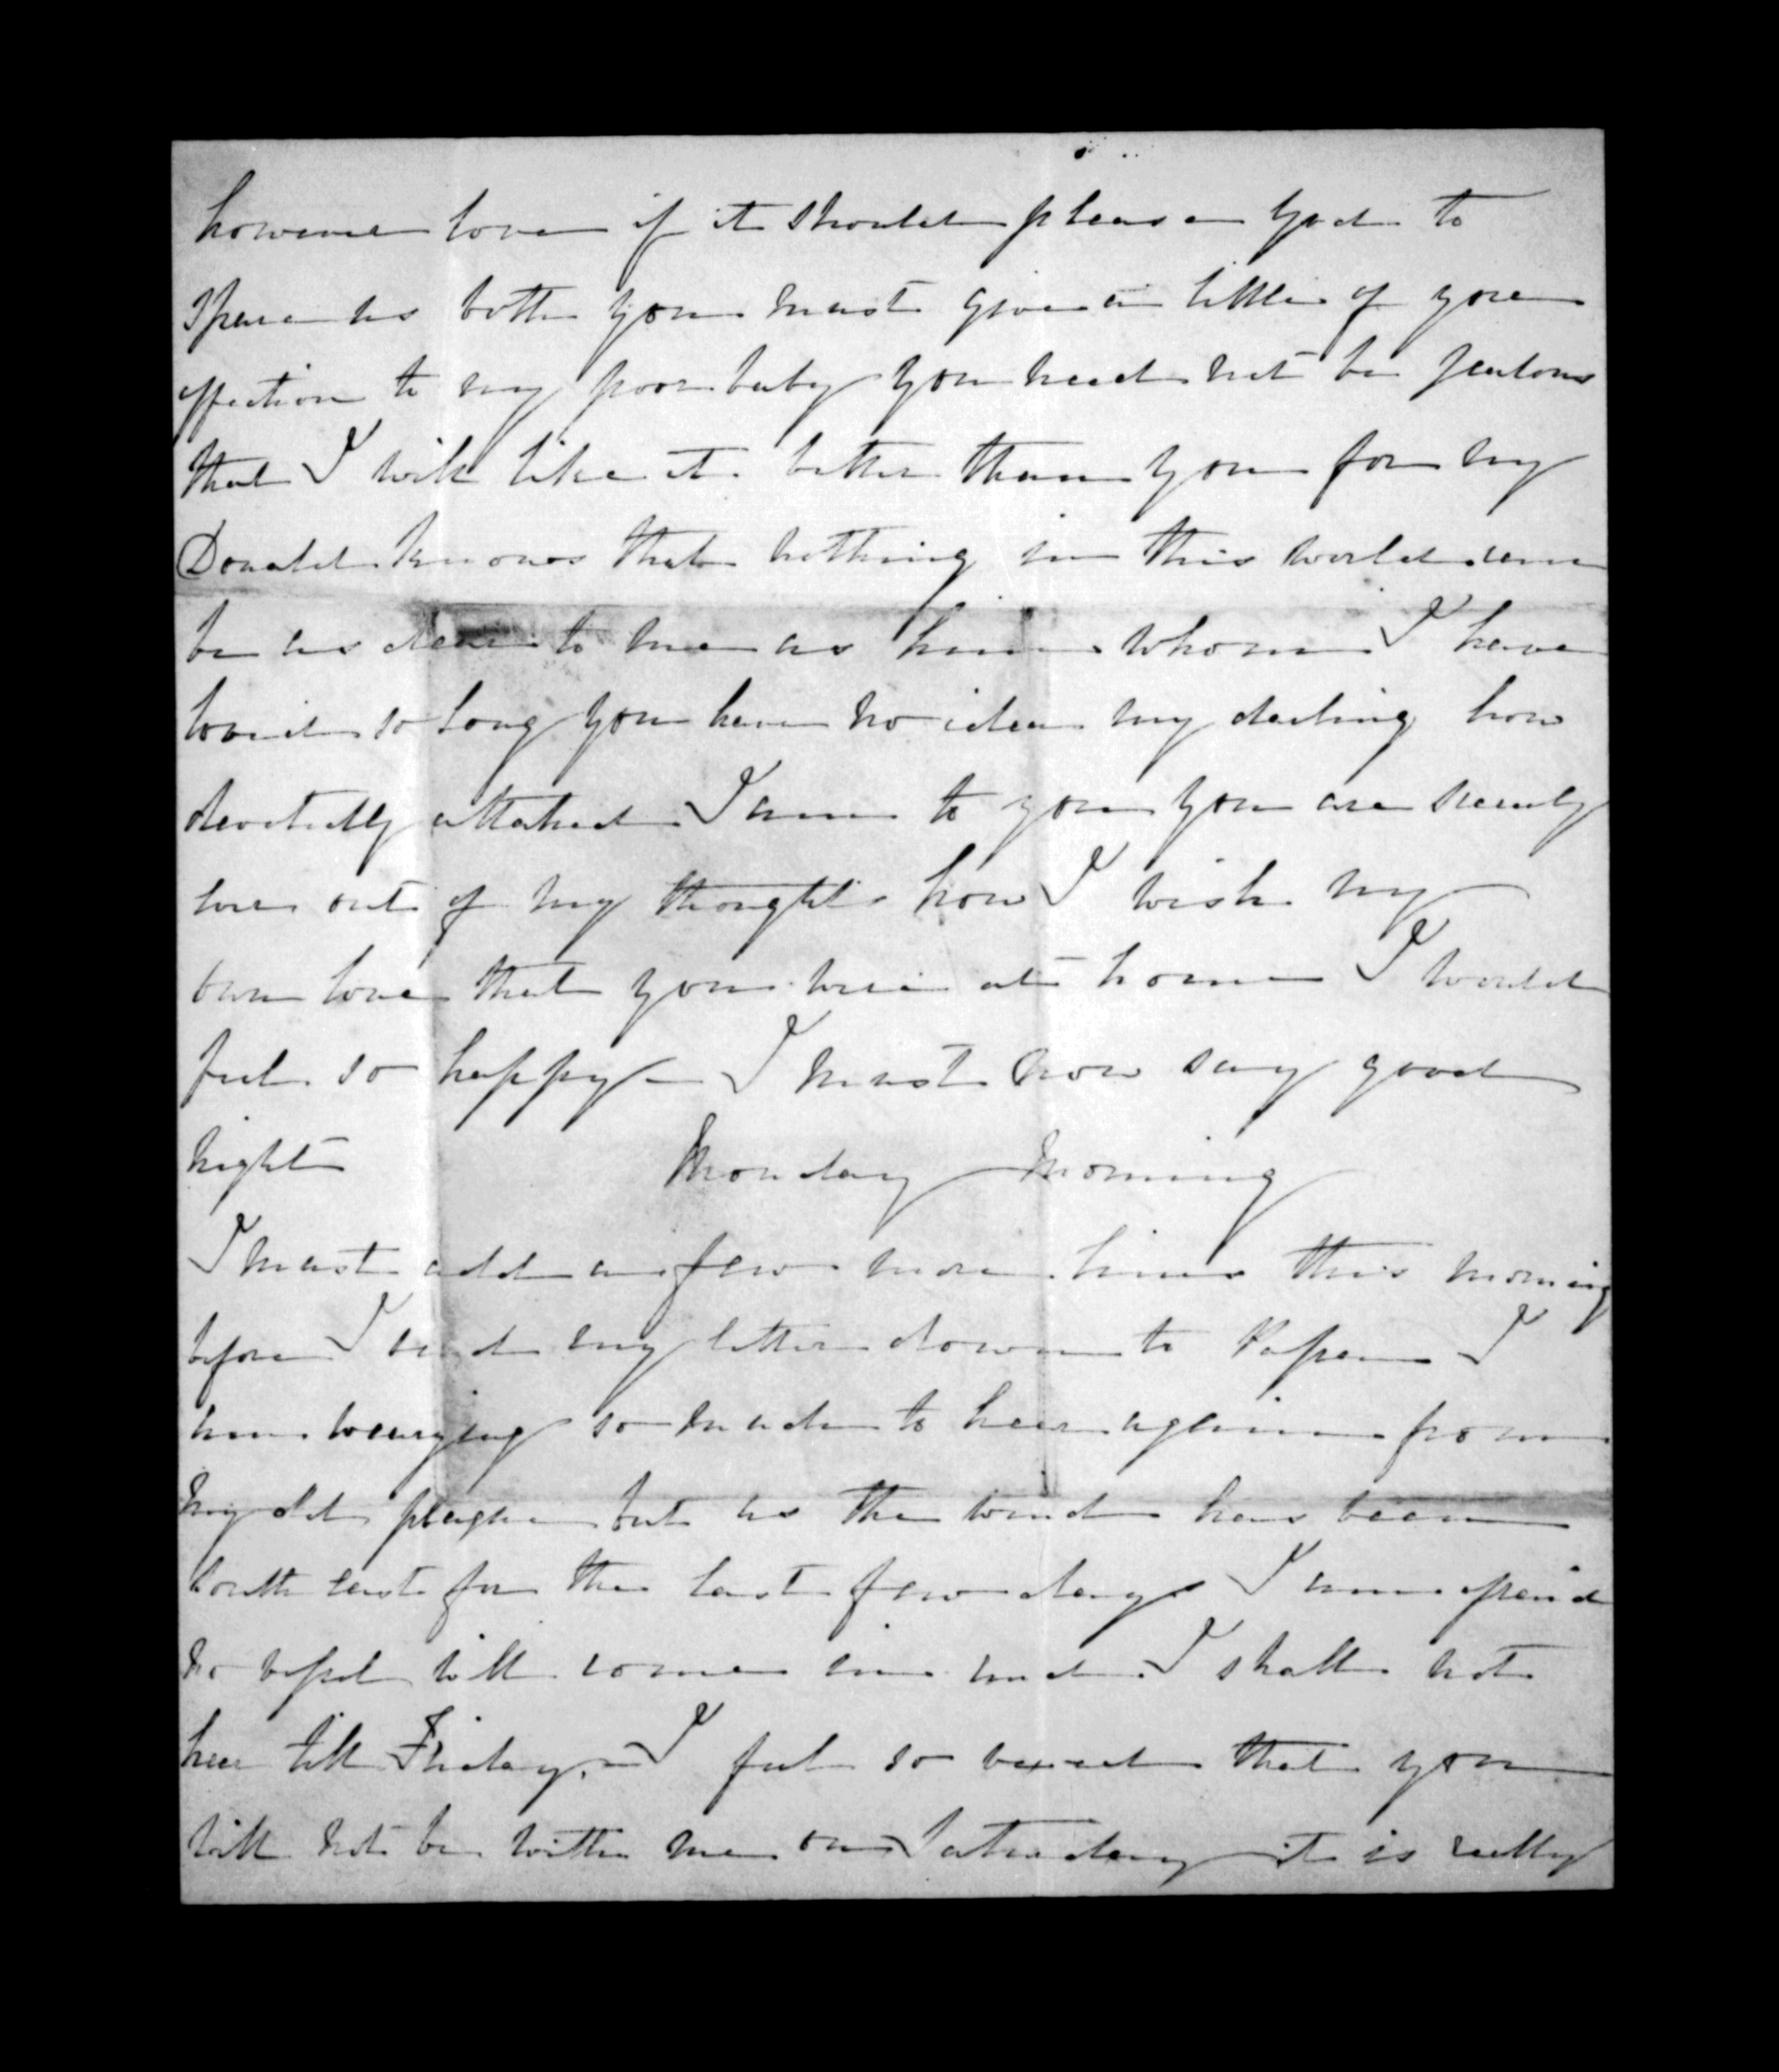 however love if it should please God to
spare us both you must give a little of your
affection to my poor baby you need not be jealous
that I will like it better than you for my
Donald knows that nothing in this world can
be as dear to me as him whom I have
loved so long you have no idea my darling how
devotedly attached I am to you you are scearly
ever out of my thoughts how I wish my
own love that you were at home I would
feel so happy - I must now say good
night Monday Morning
I must add a few more lines this morning
before I send my letter down to Papa I
am wearying so much to hear again from
my old plague but as the wind has been
South east for the last few days I am afraid
no vessel will come in and I shall not
hear till Friday. - I feel so vexed that you
will not be with me on Saturday it is really